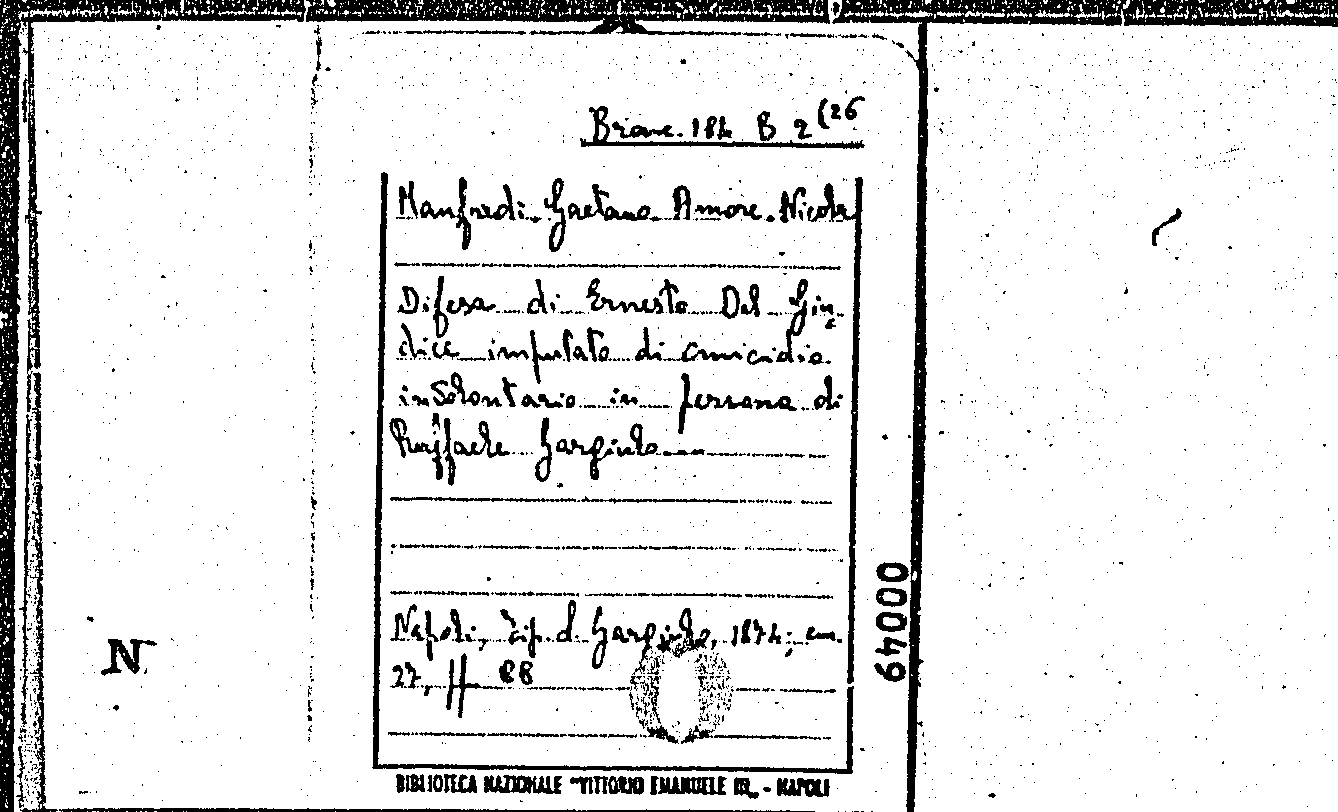 Branc. 184 B 2 (26
Manfredi. Gaetano Amore. Nicola
Difesa di Ernesto Del Giu-
dice imputato di omicidio
involontario in persona di
Raffaele Gargiulo
Napoli, Tip. d. Gargiulo, 1874; cm.
27, pp. 88
BIBLIOTECA NAZIONALE "VITTORIO EMANUELE III„ - NAPOLI
00049
N